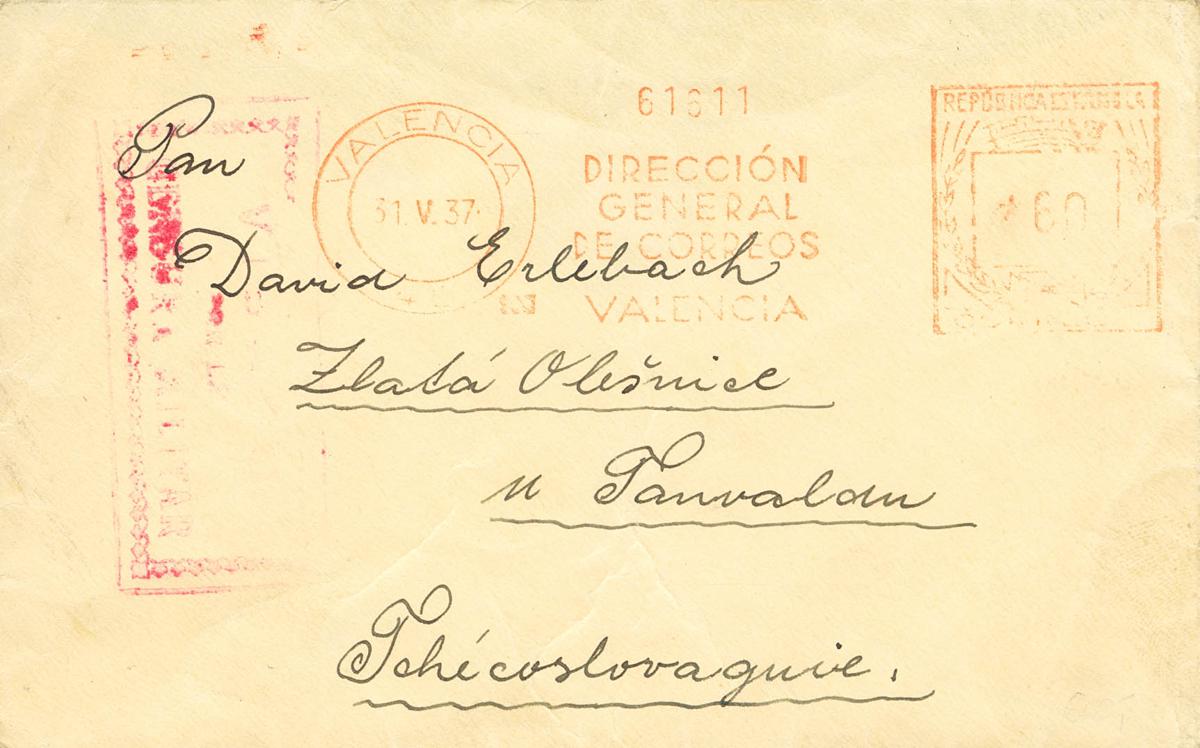 61611
REPÚBLICA ESPAÑOLA
VALENCIA
31.V.37
DIRECCIÓN
GENERAL
DE CORREOS
VALENCIA
60
CENSURA MILITAR
Pan
David Erlebach
Zlatá Olešnice
u Tanvaldu
Tchécoslovaquie.